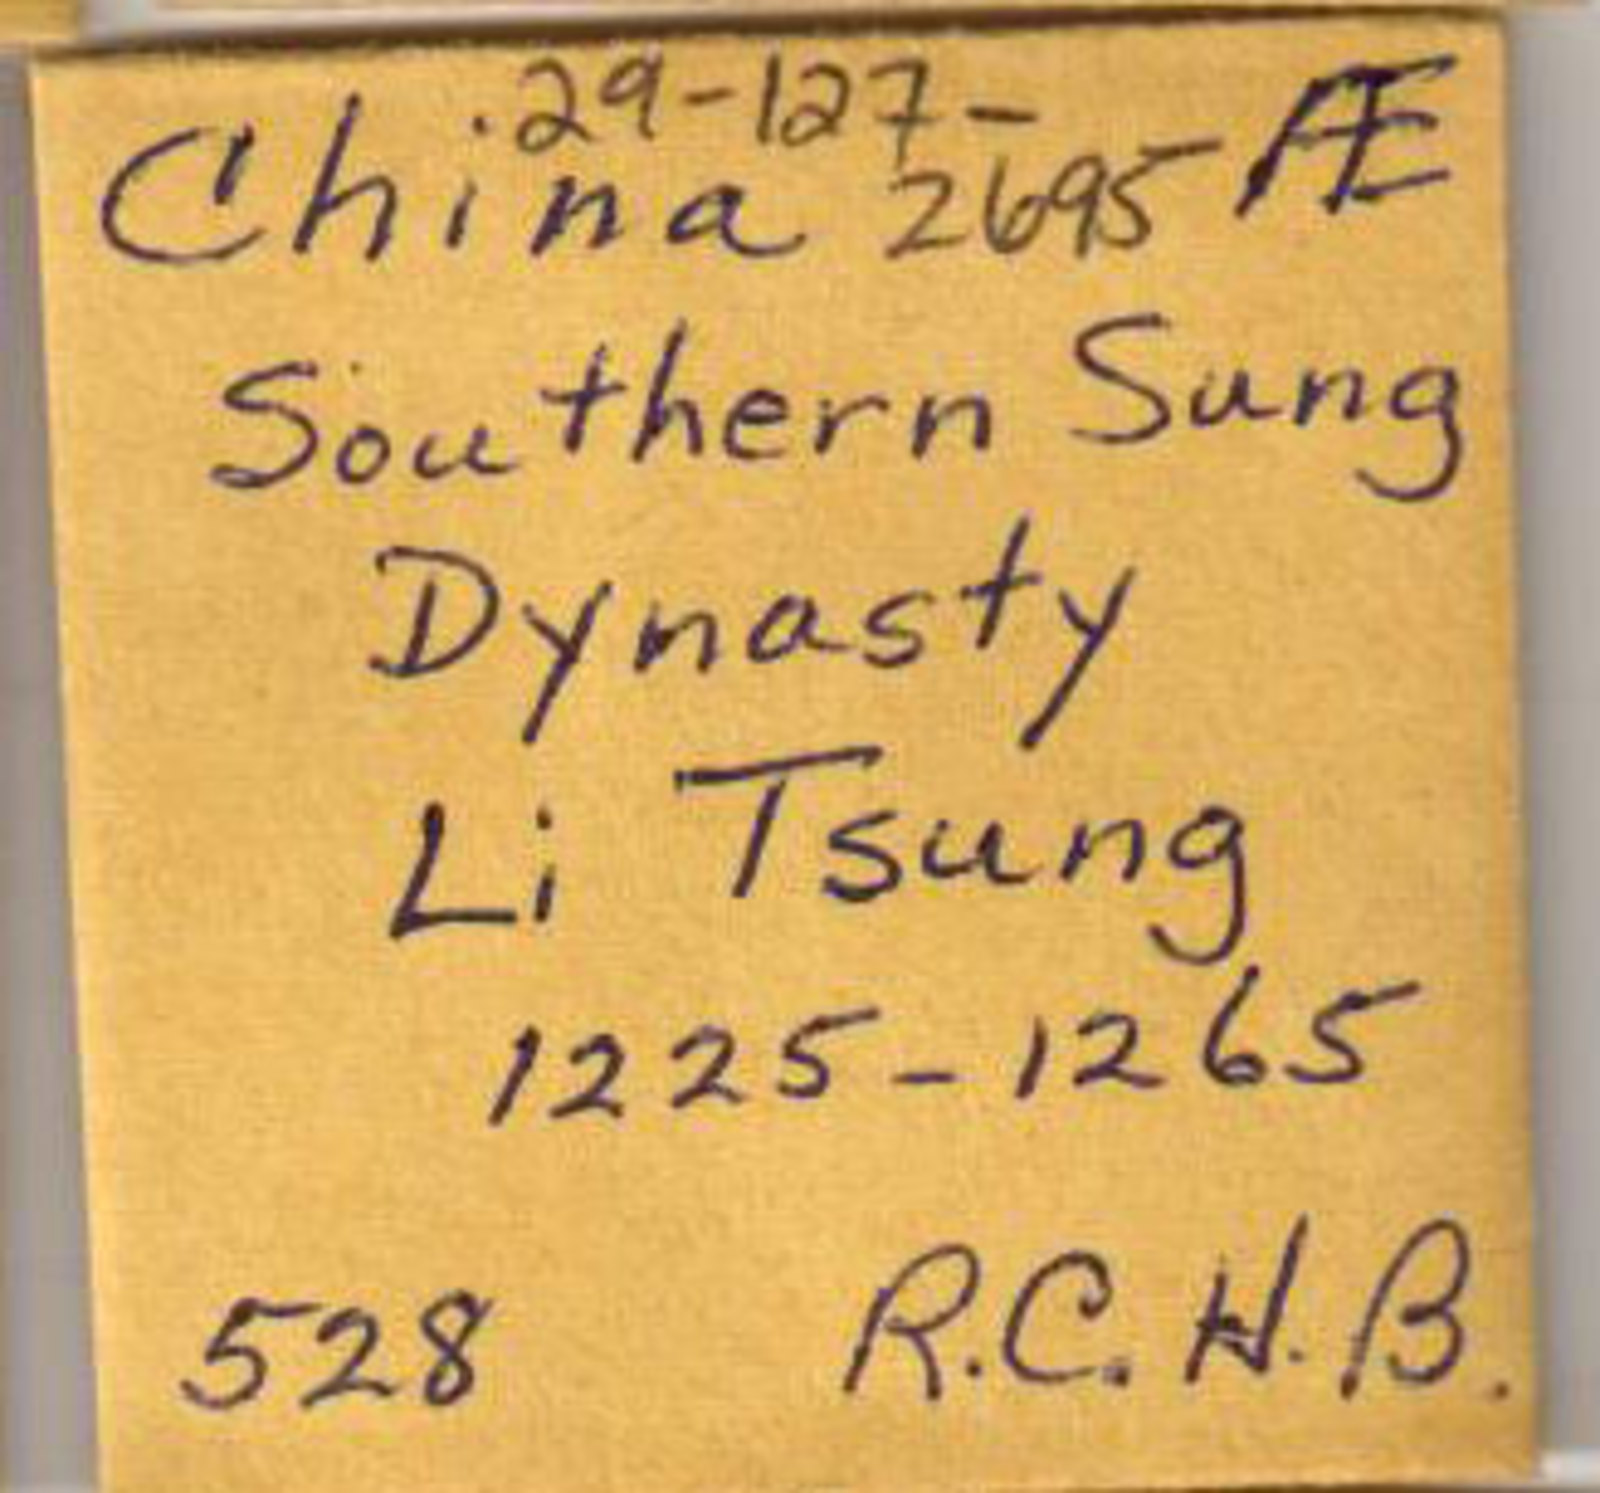 29-127-
China 2695 Æ
Southern Sung
Dynasty
Li Tsung
1225-1265
528 R.C.H.B.